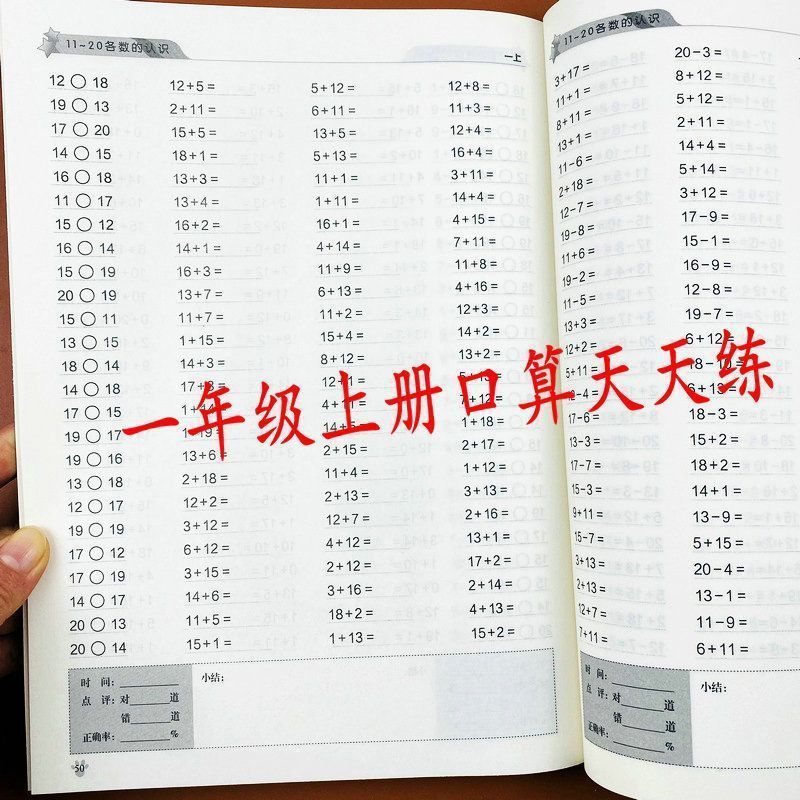 11~20各数的认识 一上
12○18 12+5= 5+12= 12+8=
19○13 2+11= 6+11= 11+3=
17○20 15+5= 13+5= 12+4=
14○15 18+1= 5+13= 16+4=
16○18 13+3= 11+1= 3+11=
11○17 13+4= 1+11= 14+4=
15○12 16+2= 16+1= 4+15=
16○14 14+1= 4+14= 7+11=
15○19 16+3= 11+9= 11+8=
20○19 13+7= 6+13= 4+16=
15○11 11+7= 11+2= 12+3=
13○15 1+15= 15+4= 14+2=
18○14 14+3= 8+12= 13+2=
14○18 12+1=
17○15 7+12=
19○17 1+18=
19○16 13+6= 2+15= 2+17=
13○18 2+18= 11+4= 1+12=
12○17 12+2= 2+13= 3+13=
19○19 3+12= 12+7= 2+16=
17○12 6+12= 4+12= 13+1=
17○19 3+15= 2+12= 17+2=
14○17 14+6= 3+16= 2+14=
20○13 11+5= 18+2= 4+13=
20○14 15+1= 1+13= 15+2=
时 间:
点 评:对 道
错 道
正确率: %
小结:
50
11~20各数的认识
3+17= 20-3=
11+1= 8+12=
8+11= 5+12=
13+1= 2+11=
11-6= 14+4=
2+18= 5+14=
12-7= 3+12=
19-8= 17-9=
11+6= 15-1=
19-2= 16-9=
11-5= 12-8=
13+3= 19-7=
12+2= 6+12=
5+11= 18-10=
6+13=
17-6= 18-3=
13-3= 15+2=
17-7= 18+2=
15-3= 14+1=
9+11= 13-9=
15-7= 5+15=
3+13= 20-4=
2+13= 13-1=
12+7= 11-9=
7+11= 6+11=
时 间:
点 评:对 道
错 道
正确率: %
小结:
一年级上册口算天天练